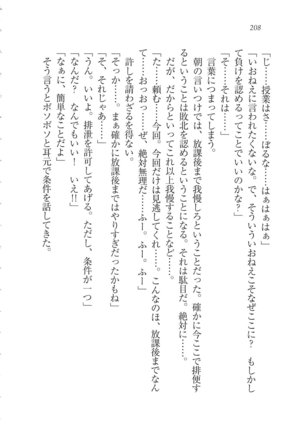 208
「じ……授業はさ……さぼるな……はぁはぁはぁ」
「いおねえに言われたくないな。で、そういういおねえこそなぜここに？　もしかし
て負けを認めるってことでいいのかな？」
「そ……それは……」
言葉につまってしまう。
朝の言いつけでは、放課後まで我慢しろということだった。確かに今ここで排便す
るということは敗北を認めるということになる。それは駄目だ。絶対に……。
だが、だからといってこれ以上我慢することなど……。
「た……頼む……今回……今回だけは見逃してくれ……。こんなのは、放課後までなん
て……おっおっ……ぜ、絶対無理だ……ふー。ふー。ふー」
許しを請わざるを得ない。
「そっか……。まぁ確かに放課後まではやりすぎだったかもね」
「そ、それじゃあ……」
「うん。いいよ。排泄を許可してあげる。ただし、条件が一つ」
「なんだ？　なんでもいい！　いえ!!」
「なぁに、簡単なことだよ」
そう言うとボソボソと耳元で条件を話してきた。